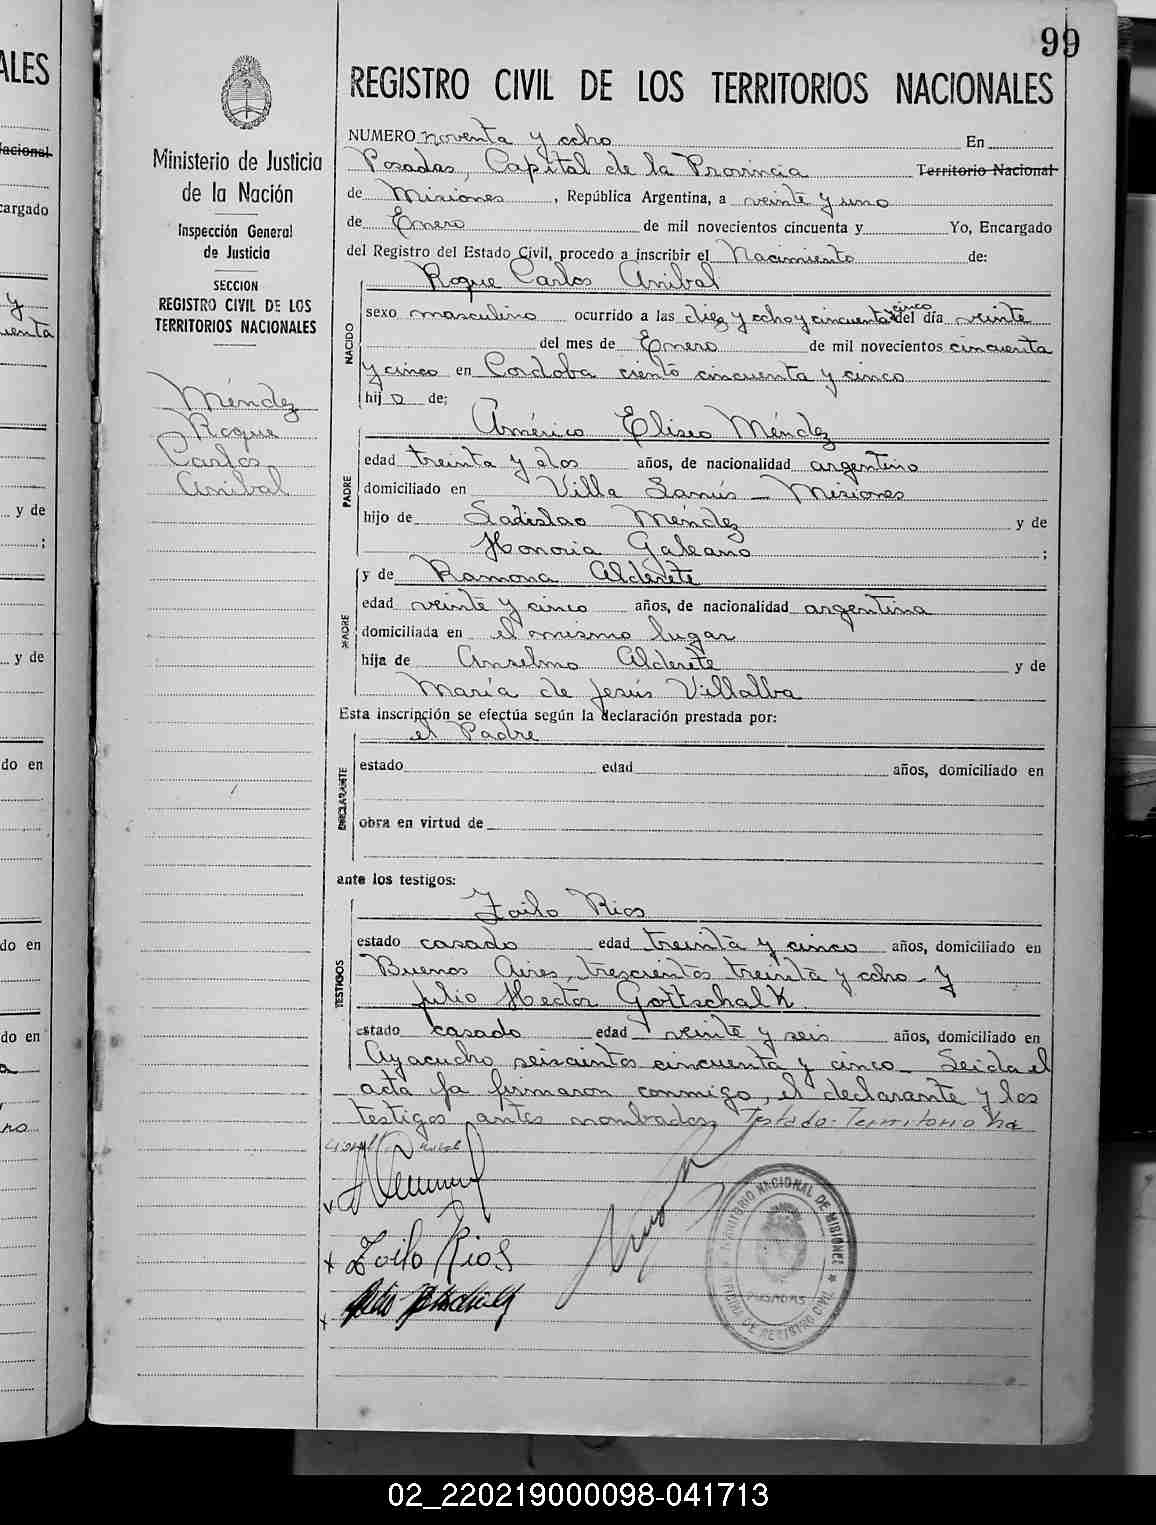 99
REGISTRO CIVIL DE LOS TERRITORIOS NACIONALES
NUMERO noventa y ocho En
Posadas, Capital de la Provincia Territorio Nacional
de Misiones, República Argentina, a veinte y uno
de Enero de mil novecientos cincuenta y Yo, Encargado
del Registro del Estado Civil, procedo a inscribir el Nacimiento de:
Roque Carlos Anibal
NACIDO
sexo masculino ocurrido a las diez y ocho y cincuenta y cinco del día veinte
del mes de Enero de mil novecientos cincuenta
y cinco en Cordoba ciento cincuenta y cinco
hijo de:
Américo Eliseo Méndez
PADRE
edad treinta y dos años, de nacionalidad argentino
domiciliado en Villa Lanús - Misiones
hijo de Ladislao Méndez y de
Honoria Galeano ;
y de Ramona Alderete
MADRE
edad veinte y cinco años, de nacionalidad argentina
domiciliada en el mismo lugar
hija de Anselmo Alderete y de
María de Jesús Villalba
Esta inscripción se efectúa según la declaración prestada por:
el Padre
DECLARANTE
estado edad años, domiciliado en
obra en virtud de
ante los testigos:
Zoilo Rios
TESTIGOS
estado casado edad treinta y cinco años, domiciliado en
Buenos Aires, trescientos treinta y ocho - y
Julio Hector Gottschalk
estado casado edad veinte y seis años, domiciliado en
Ayacucho seiscientos cincuenta y cinco - Leida el
acta la firmaron conmigo, el declarante y los
testigos antes nombrados, Testado: Territorio Na
Zoilo Rios
TERRITORIO NACIONAL DE MISIONES
POSADAS
OFICINA DE REGISTRO CIVIL
Ministerio de Justicia
de la Nación
Inspección General
de Justicia
SECCION
REGISTRO CIVIL DE LOS
TERRITORIOS NACIONALES
Méndez
Roque
Carlos
Anibal
ALES
Nacional
cargado
y
uenta
y de
;
y de
do en
do en
do en
02_220219000098-041713